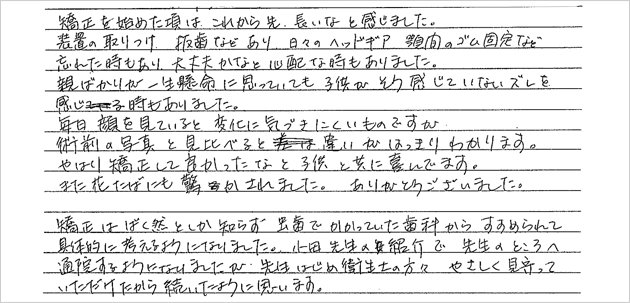 矯正を始めた頃は これから先、長いなと感じました。
装置の取りつけ、抜歯などあり 日々のヘッドギア 顎間のゴム固定など
忘れた時もあり 大丈夫かなと心配な時もありました。
親ばかりが一生懸命に思っていても 子供がそう感じていないズレを
感じる時もありました。
毎日顔を見ていると変化に気づきにくいものですが
術前の写真と見比べると 違いがはっきりわかります。
やはり矯正して良かったなと子供と共に喜んでます。
また花たばにも驚かされました。 ありがとうございました。
矯正はばく然としか知らず 虫歯でかかっていた歯科からすすめられて
具体的に考えるようになりました。小田先生の紹介で先生のところへ
通院するようになりましたが 先生はじめ衛生士の方々 やさしく見守って
いただけたから続いたように思います。